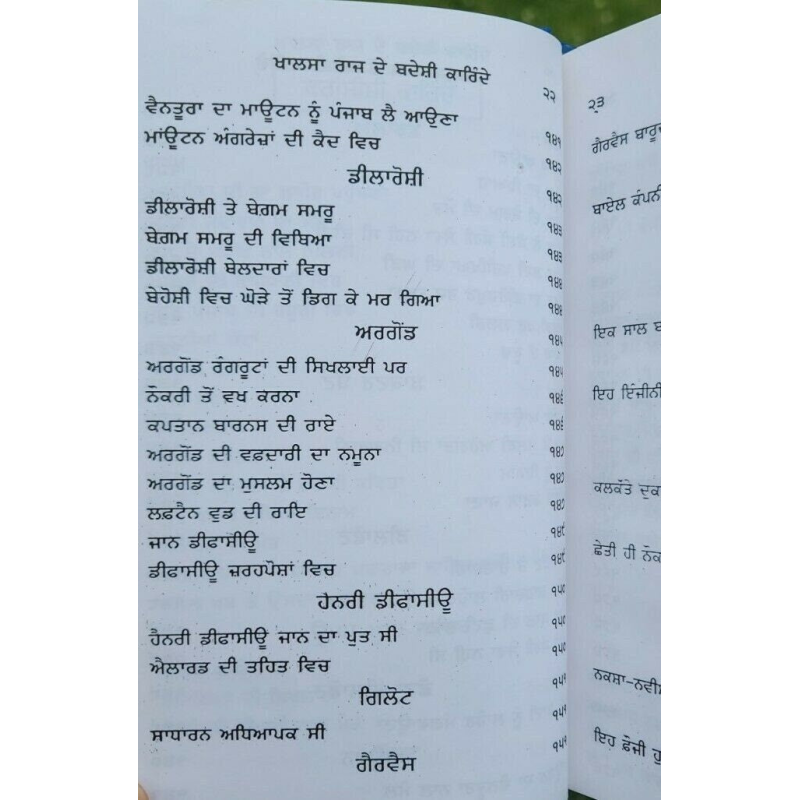 ਖਾਲਸਾ ਰਾਜ ਦੇ ਬਦੇਸ਼ੀ ਕਾਰਿੰਦੇ
੨੨
ਵੈਨਤੂਰਾ ਦਾ ਮਾਊਟਨ ਨੂੰ ਪੰਜਾਬ ਲੈ ਆਉਣਾ ੧੪੧
ਮਾਂਊਟਨ ਅੰਗਰੇਜ਼ਾਂ ਦੀ ਕੈਦ ਵਿਚ ੧੪੨
ਡੀਲਾਰੋਸ਼ੀ ੧੪੨
ਡੀਲਾਰੋਸ਼ੀ ਤੇ ਬੇਗਮ ਸਮਰੂ ੧੪੩
ਬੇਗਮ ਸਮਰੂ ਦੀ ਵਿਥਿਆ ੧੪੩
ਡੀਲਾਰੋਸ਼ੀ ਬੇਲਦਾਰਾਂ ਵਿਚ ੧੪੪
ਬੇਹੋਸ਼ੀ ਵਿਚ ਘੋੜੇ ਤੋਂ ਡਿਗ ਕੇ ਮਰ ਗਿਆ ੧੪੪
ਅਰਗੌਂਡ ੧੪੫
ਅਰਗੌਂਡ ਰੰਗਰੂਟਾਂ ਦੀ ਸਿਖਲਾਈ ਪਰ ੧੪੫
ਨੌਕਰੀ ਤੋਂ ਵਖ ਕਰਨਾ ੧੪੬
ਕਪਤਾਨ ਬਾਰਨਸ ਦੀ ਰਾਏ ੧੪੬
ਅਰਗੌਂਡ ਦੀ ਵਫ਼ਦਾਰੀ ਦਾ ਨਮੂਨਾ ੧੪੭
ਅਰਗੌਂਡ ਦਾ ਮੁਸਲਮ ਹੋਣਾ ੧੪੭
ਲਫ਼ਟੈਨ ਵੁਡ ਦੀ ਰਾਇ ੧੪੭
ਜਾਨ ਡੀਫਾਸੀਊ ੧੪੯
ਡੀਫਾਸੀਊ ਜ਼ਰਹਪੋਸ਼ਾਂ ਵਿਚ ੧੪੯
ਹੇਨਰੀ ਡੀਫਾਸੀਊ ੧੫੦
ਹੈਨਰੀ ਡੀਫਾਸੀਊ ਜਾਨ ਦਾ ਪੁਤ ਸੀ ੧੫੦
ਐਲਾਰਡ ਦੀ ਤਹਿਤ ਵਿਚ ੧੫੦
ਗਿਲੋਟ ੧੫੧
ਸਾਧਾਰਨ ਅਧਿਆਪਕ ਸੀ ੧੫੧
ਗੈਰਵੈਸ ੧੫੧
੨੩
ਗੈਰਵੈਸ
ਬਾਏਲ
ਇਕ ਸਾਲ
ਇਹ
ਕਲਕੱਤੇ
ਛੇਤੀ ਹੀ
ਇਹ ਫ਼ੌਜੀ